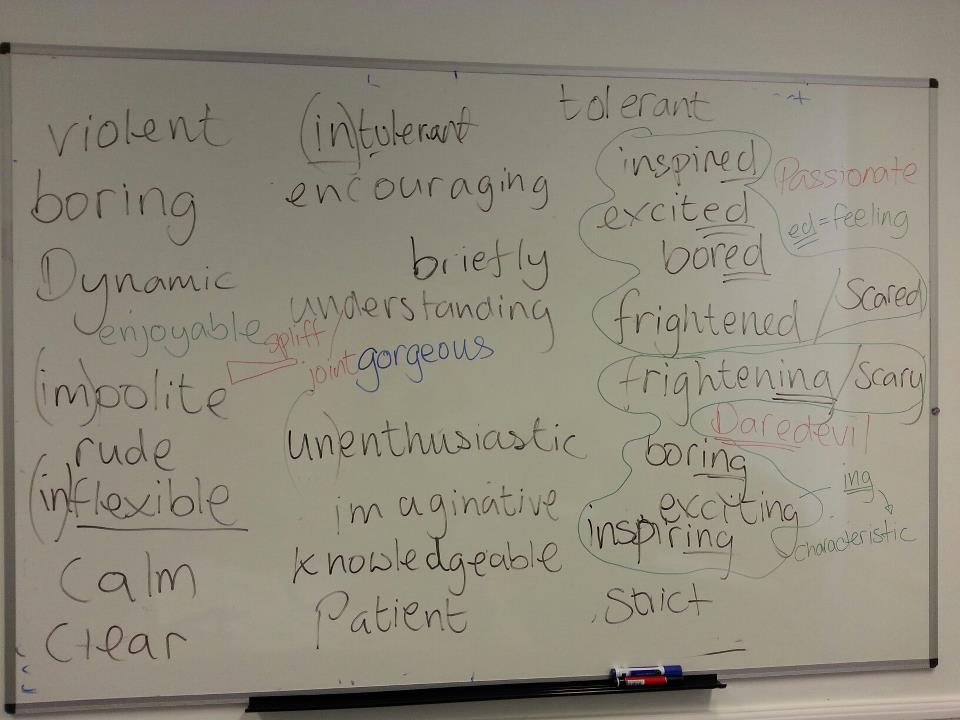 violent
boring
Dynamic
enjoyable
(im)polite
rude
(in)flexible
Calm
Clear
(in)tolerant
encouraging
briefly
understanding
spliff /
joint
gorgeous
(un)enthusiastic
imaginative
knowledgeable
Patient
tolerant
inspired
excited
bored
frightened / Scared
Passionate
ed = feeling
frightening / Scary
Daredevil
boring
exciting
inspiring
ing
characteristic
Strict